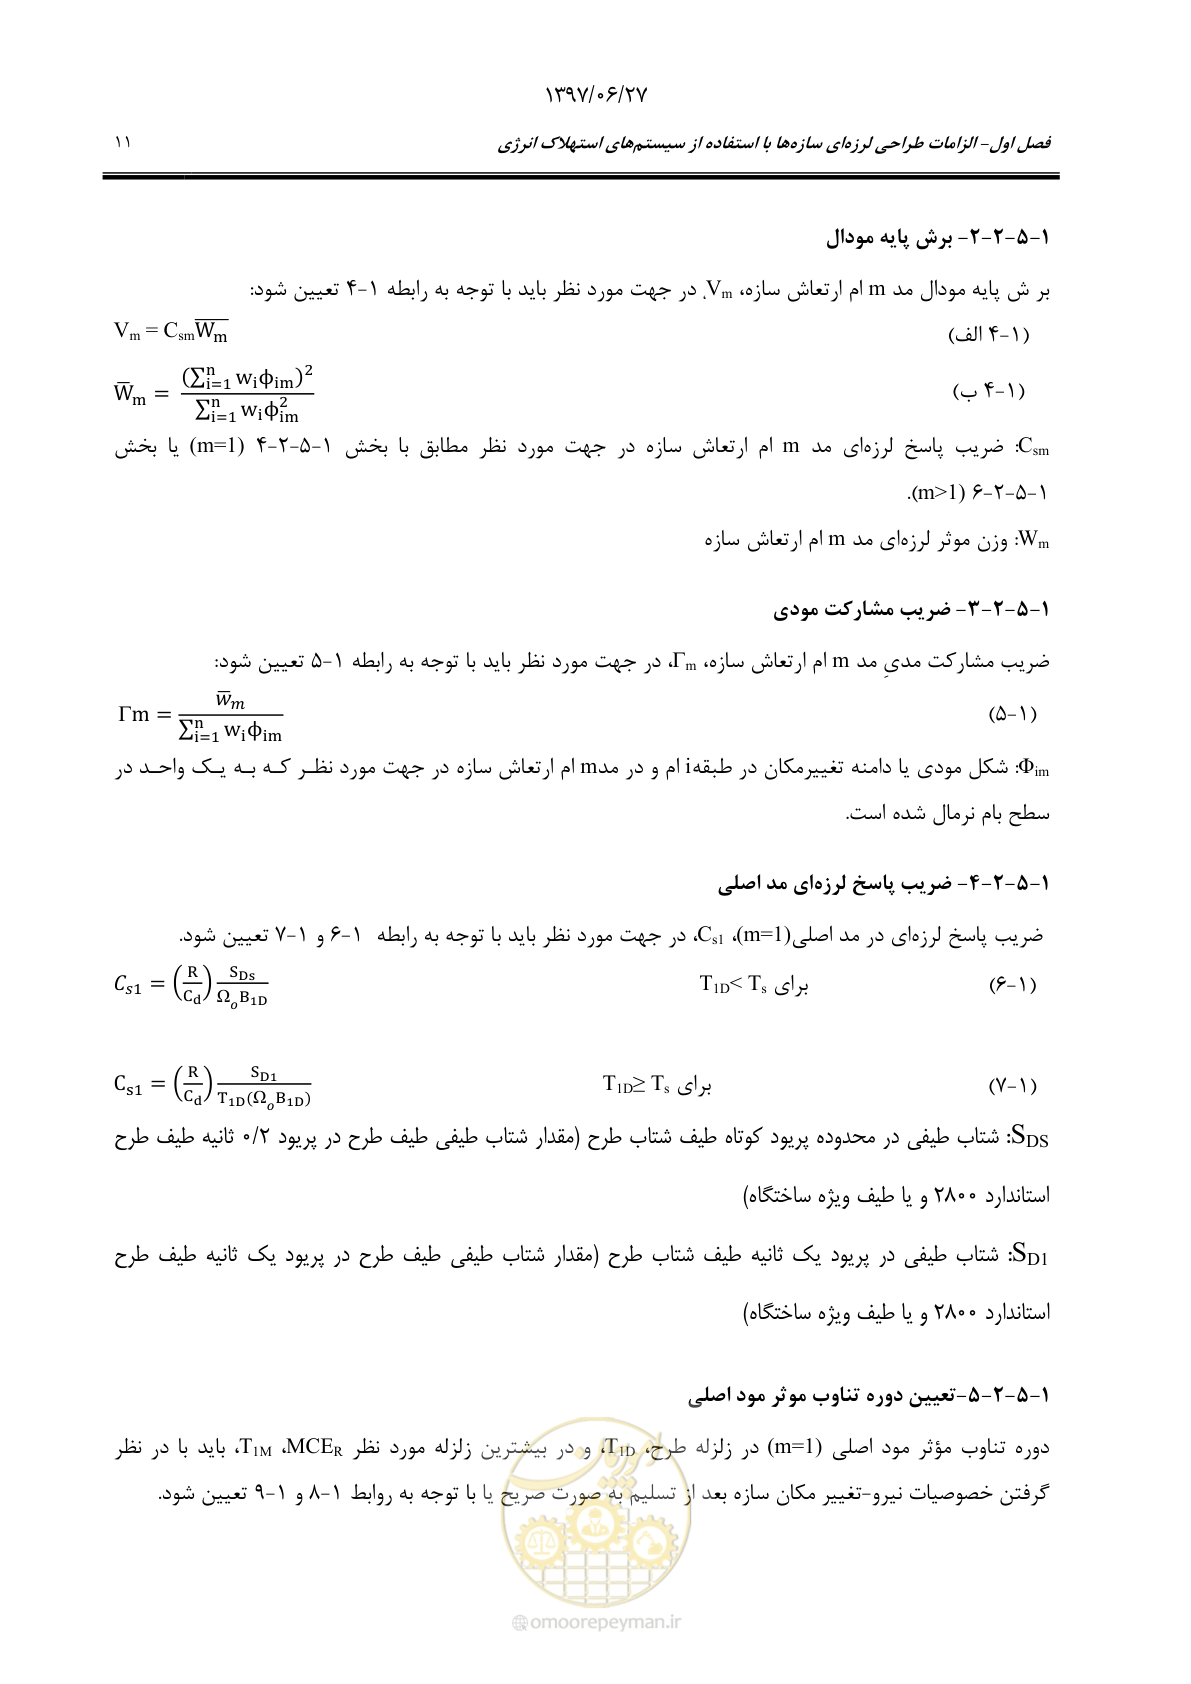 ۱۳۹۷/۰۶/۲۷
فصل اول- الزامات طراحی لرزه‌ای سازه‌ها با استفاده از سیستم‌های استهلاک انرژی ۱۱
۱-۵-۲-۲- برش پایه مودال
بر ش پایه مودال مد m ام ارتعاش سازه، Vm، در جهت مورد نظر باید با توجه به رابطه ۱-۴ تعیین شود:
(۱-۴ الف) Vm = Csm W̅m
(۱-۴ ب) W̅m = (∑ⁿᵢ₌₁ wᵢϕim)² / ∑ⁿᵢ₌₁ wᵢϕ²im
Csm: ضریب پاسخ لرزه‌ای مد m ام ارتعاش سازه در جهت مورد نظر مطابق با بخش ۱-۵-۲-۴ (m=1) یا بخش
۱-۵-۲-۶ (m>1).
Wm: وزن موثر لرزه‌ای مد m ام ارتعاش سازه
۱-۵-۲-۳- ضریب مشارکت مودی
ضریب مشارکت مدیِ مد m ام ارتعاش سازه، Γm، در جهت مورد نظر باید با توجه به رابطه ۱-۵ تعیین شود:
(۱-۵) Γm = w̅m / ∑ⁿᵢ₌₁ wᵢϕim
Φim: شکل مودی یا دامنه تغییرمکان در طبقه i ام و در مد m ام ارتعاش سازه در جهت مورد نظر که به یک واحد در
سطح بام نرمال شده است.
۱-۵-۲-۴- ضریب پاسخ لرزه‌ای مد اصلی
ضریب پاسخ لرزه‌ای در مد اصلی(m=1)، Cs1، در جهت مورد نظر باید با توجه به رابطه ۱-۶ و ۱-۷ تعیین شود.
(۱-۶) برای T1D< Ts Cs1 = (R/Cd) SDs / ΩoB1D
(۱-۷) برای T1D≥ Ts Cs1 = (R/Cd) SD1 / T1D(ΩoB1D)
SDS: شتاب طیفی در محدوده پریود کوتاه طیف شتاب طرح (مقدار شتاب طیفی طیف طرح در پریود ۰/۲ ثانیه طیف طرح
استاندارد ۲۸۰۰ و یا طیف ویژه ساختگاه)
SD1: شتاب طیفی در پریود یک ثانیه طیف شتاب طرح (مقدار شتاب طیفی طیف طرح در پریود یک ثانیه طیف طرح
استاندارد ۲۸۰۰ و یا طیف ویژه ساختگاه)
۱-۵-۲-۵-تعیین دوره تناوب موثر مود اصلی
دوره تناوب مؤثر مود اصلی (m=1) در زلزله طرح، T1D، و در بیشترین زلزله مورد نظر MCER، T1M، باید با در نظر
گرفتن خصوصیات نیرو-تغییر مکان سازه بعد از تسلیم به صورت صریح یا با توجه به روابط ۱-۸ و ۱-۹ تعیین شود.
امورپیمان
omoorepeyman.ir